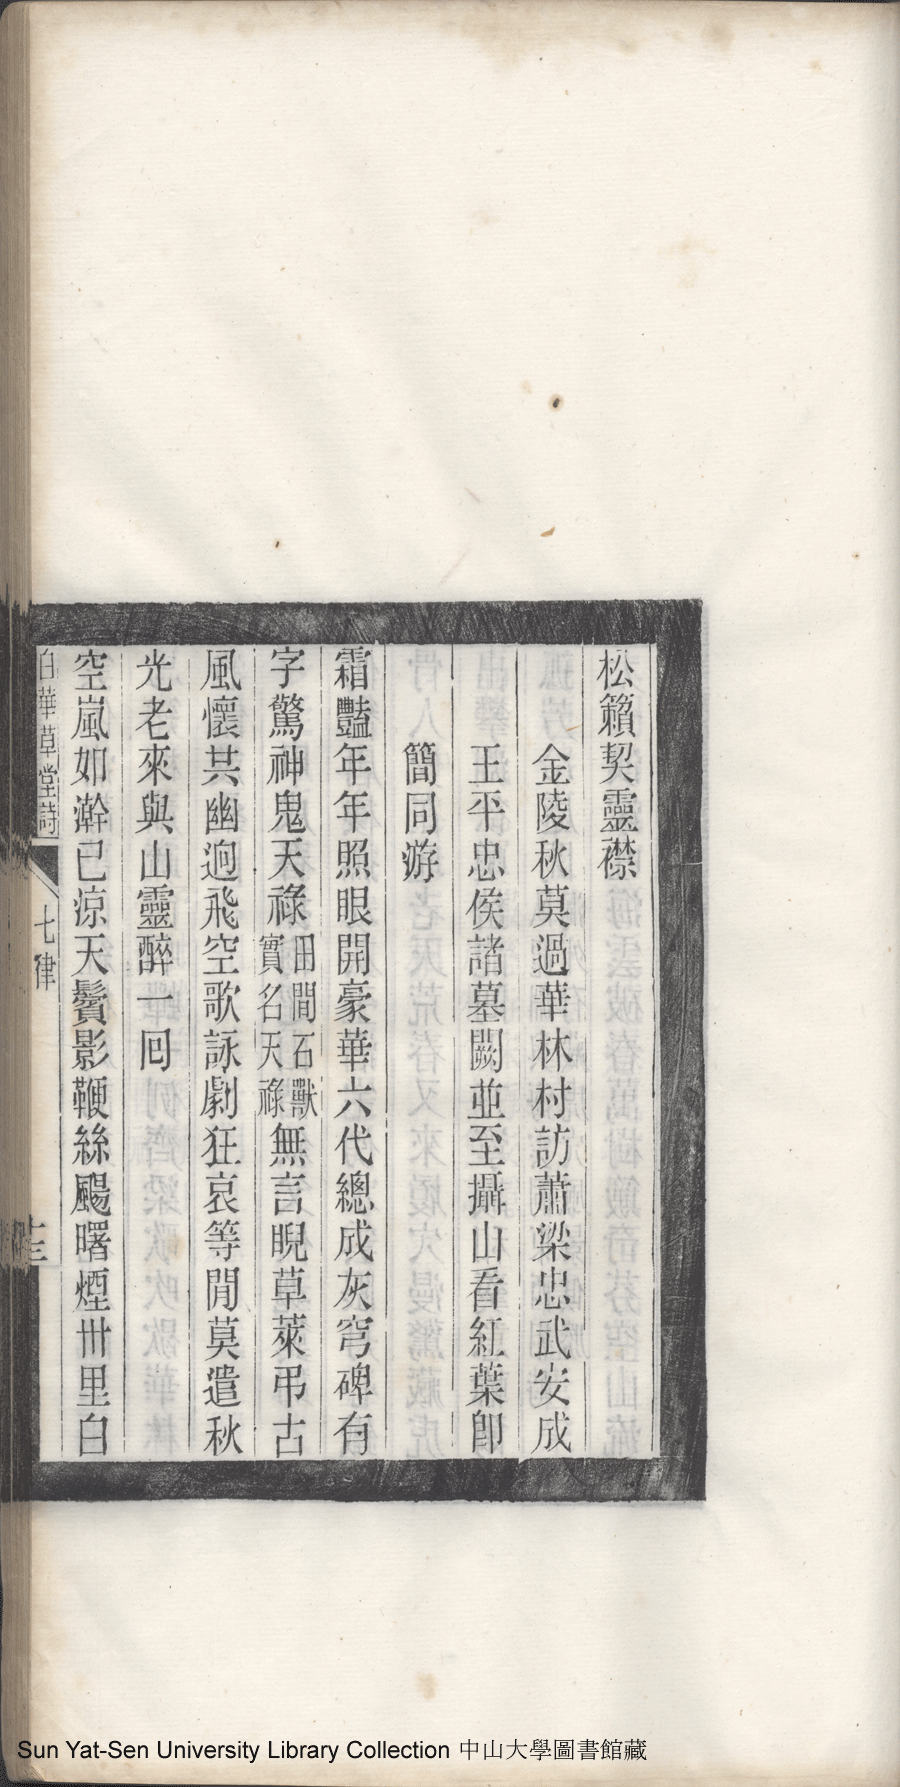 松籟契靈襟
金陵秋莫過華林村訪蕭梁忠武安成
王平忠侯諸墓闕並至攝山看紅葉卽
簡同游
霜豔年年照眼開豪華六代總成灰穹碑有
字驚神鬼天祿田間石獸實名天祿無言睨草萊弔古
風懷共幽迥飛空歌詠劇狂哀等閒莫遣秋
光老來與山靈醉一囘
空嵐如澣已涼天鬢影鞭絲颺曙煙卅里白
白華草堂詩 七律
Sun Yat-Sen University Library Collection 中山大學圖書館藏